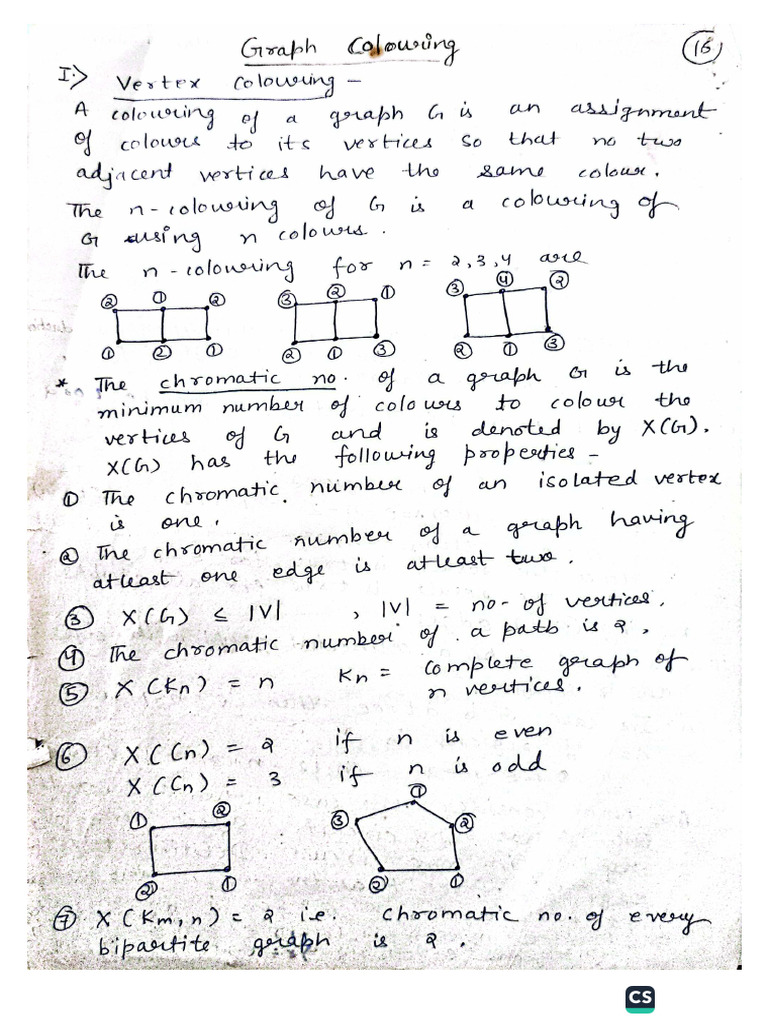 Graph Colouring
16
I:> Vertex Colouring -
A colouring of a graph G is an assignment
of colours to its vertices so that no two
adjacent vertices have the same colour.
The n-colouring of G is a colouring of
G using n colours.
The n-colouring for n = 2,3,4 are
② ① ② ③ ② ① ③ ④ ②
① ② ① ② ① ③ ② ① ③
* The chromatic no. of a graph G is the
minimum number of colours to colour the
vertices of G and is denoted by X(G).
X(G) has the following properties -
① The chromatic number of an isolated vertex
is one.
② The chromatic number of a graph having
atleast one edge is atleast two.
③ X(G) ≤ |V| , |V| = no- of vertices.
④ The chromatic number of a path is 2.
⑤ X(Kn) = n Kn = complete graph of
n vertices.
⑥ X(Cn) = 2 if n is even
X(Cn) = 3 if n is odd
① ② ③ ① ②
② ① ② ①
⑦ X(Km,n) = 2 i.e. chromatic no. of every
bipartite graph is 2.
CS